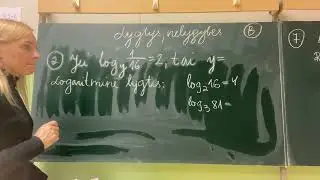 Lygtys, nelygybės
B
② Jei log_y 1/16 = 2, tai y=
Logaritminė lygtis; log₂16=4
log₃81=
7